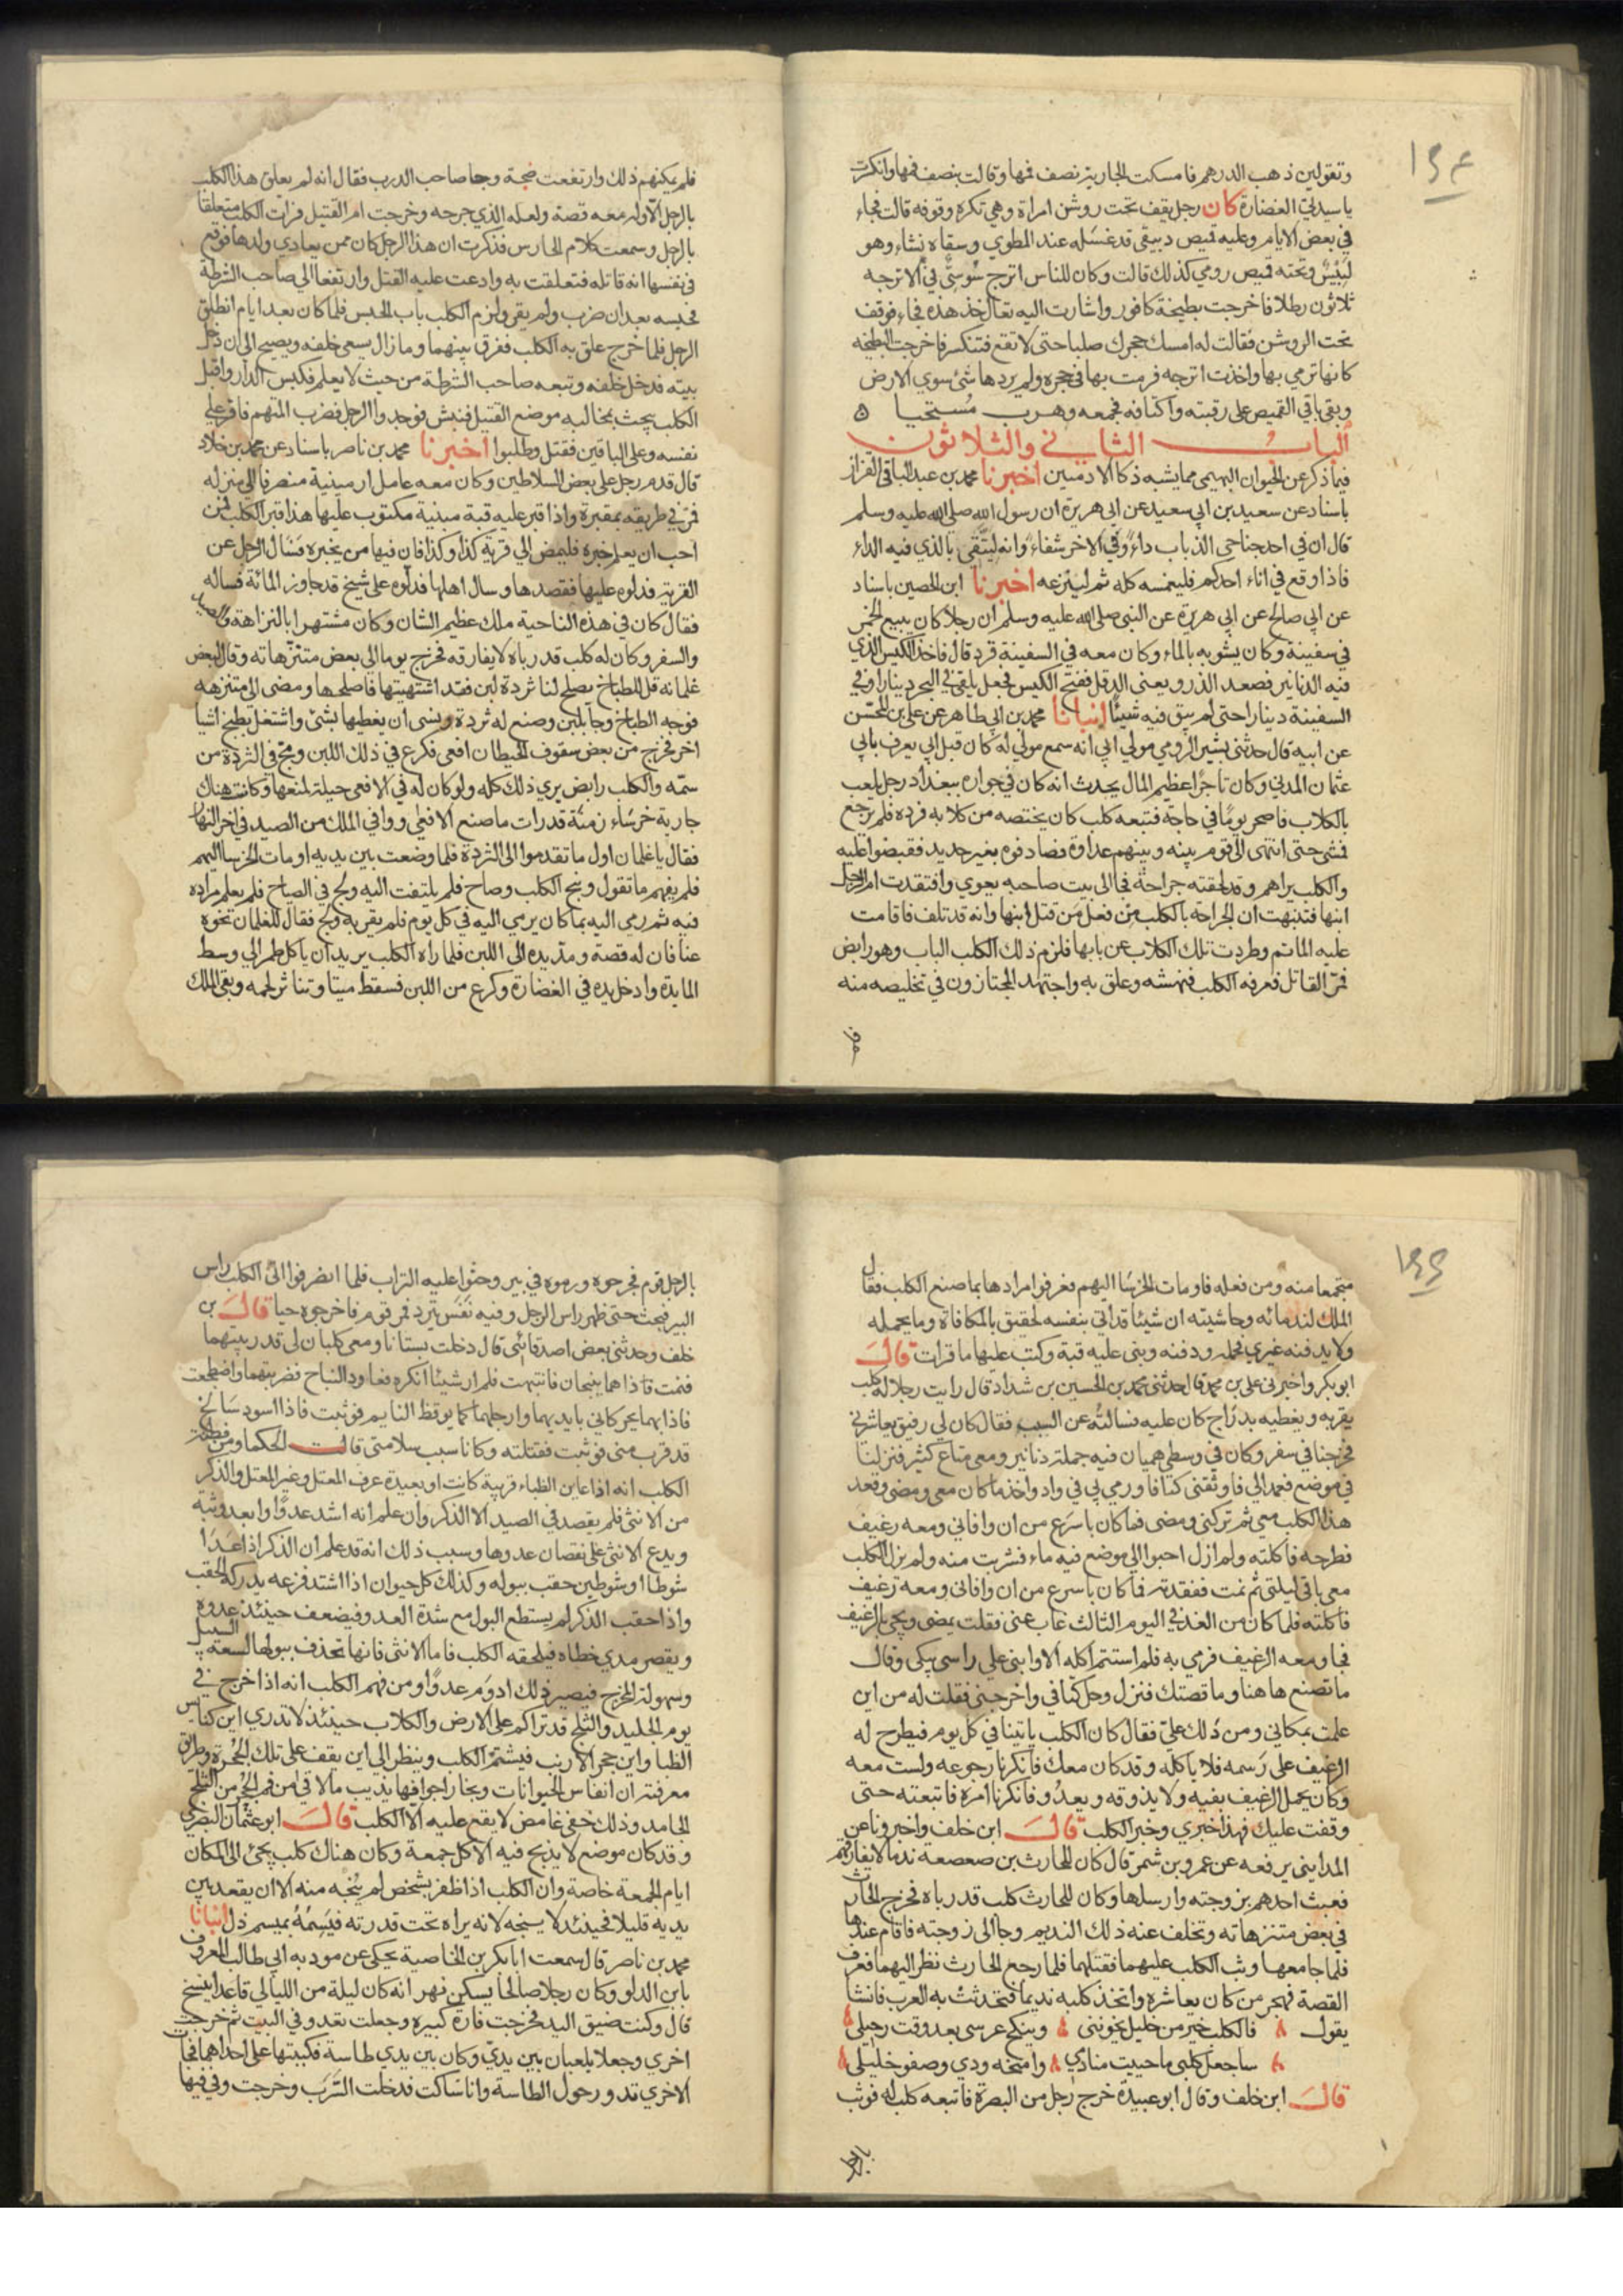 ١٥٤
وتقولين ذهب الدرهم فامسكت الجارية نصف فمها وقالت بنصف فمها وانكسرت
يا سيدتي الغضارة كان رجل يقف تحت روشن امراة وهي تكره وقوفه قالت فجاء
في بعض الايام وعليه قميص دبيقي قد غسله عند المطوي وسقاه نشاء وهو
لبيس وتحته قميص رومي كذلك قالت وكان للناس اترج سوسي في الاترجه
ثلاثون رطلا فاخرجت بطيخة كافور واشارت اليه تعال خذ هذه فجاء فوقف
تحت الروشن فقالت له امسك حجرك صلبا حتى لا تقع فتنكسر فاخرجت البطيخه
كانها ترمي بها واخذت اترجه فرمت بها في حجره ولم يردها شئ سوي الارض
وبقي باقي القميص على رقبته واكتافه فجمعه وهرب مستحيا ه
الباب الثاني والثلاثون
فيما ذكر عن الحيوان البهيمي مما يشبه ذكا الادميين اخبرنا محمد بن عبد الباقي القزاز
باسناد عن سعيد بن ابي سعيد عن ابي هريرة ان رسول الله صلى الله عليه وسلم
قال ان في احد جناحي الذباب داء وفي الاخر شفاء وانه ليتقي بالذي فيه الداء
فاذا وقع في اناء احدكم فليغمسه كله ثم لينزعه اخبرنا ابن الحصين باسناد
عن ابي صالح عن ابي هريرة عن النبي صلى الله عليه وسلم ان رجلا كان يبيع الخمر
في سفينة وكان يشوبه بالماء وكان معه في السفينة قرد قال فاخذ الكيس الذي
فيه الدنانير فصعد الذرو يعني الدقل ففتح الكيس فجعل يلقي في البحر دينارا وفي
السفينة دينارا حتى لم يبق فيه شيئا انبانا محمد بن ابي طاهر عن علي بن المحسن
عن ابيه قال حدثني بشير الرومي مولي ابي انه سمع مولي له كان قبل ابي يعرف بابي
عثمان المدني وكان تاجرا عظيم المال يحدث انه كان في جواره ببغداد رجل يلعب
بالكلاب فاصحر يوما في حاجة فتبعه كلب كان يختصه من كلابه فرده فلم يرجع
فمشي حتى انتهى الي قوم بينه وبينهم عداوة فصادفوه بغير حديد فقبضوا عليه
والكلب يراهم وقد لحقته جراحة فجا الى بيت صاحبه يعوي وافتقدت ام الرجل
ابنها فتنبهت ان الجراحة بالكلب من فعل من قتل ابنها وانه قد تلف فاقامت
عليه الماتم وطردت تلك الكلاب عن بابها فلزم ذلك الكلب الباب وهو رابض
فمر القاتل فعرفه الكلب فنهشه وعلق به واجتهد المجتازون في تخليصه منه
فلم
فلم يمكنهم ذلك وارتفعت ضجة وجا صاحب الدرب فقال انه لم يعلق هذا الكلب
بالرجل الا وله معه قصة ولعله الذي جرحه وخرجت ام القتيل فرات الكلب متعلقا
بالرجل وسمعت كلام الحارس فذكرت ان هذا الرجل كان ممن يعادي ولدها فوقع
في نفسها انه قاتله فتعلقت به وادعت عليه القتل وارتفعا الي صاحب الشرطة
فحبسه بعد ان ضرب ولم يقر ولزم الكلب باب الحبس فلما كان بعد ايام انطلق
الرجل فلما خرج علق به الكلب ففرق بينهما وما زال يسعي خلفه ويصيح الي ان دخل
بيته فدخل خلفه وتبعه صاحب الشرطة من حيث لا يعلم فكبس الدار واقبل
الكلب يبحث بمخالبه موضع القتيل فنبش فوجدوا الرجل فضرب المتهم فاقر علي
نفسه وعلى الباقين فقتل وطلبوا اخبرنا محمد بن ناصر باسناد عن محمد بن خلاد
قال قدم رجل على بعض السلاطين وكان معه عامل ارمينية منصرفا الي منزله
فمر في طريقه بمقبرة واذا قبر عليه قبة مبنية مكتوب عليها هذا قبر الكلب فمن
احب ان يعلم خبره فليمض الي قرية كذا وكذا فان فيها من يخبره فسال الرجل عن
القرية فدلوه عليها فقصدها وسال اهلها فدلوه على شيخ قد جاوز المائة فساله
فقال كان في هذه الناحية ملك عظيم الشان وكان مشتهرا بالنزاهة والصيد
والسفر وكان له كلب قد رباه لا يفارقه فخرج يوما الي بعض متنزهاته وقال لبعض
غلمانه قل للطباخ يصلح لنا ثردة لبن فقد اشتهيتها فاصلحها ومضى الي متنزهه
فوجه الطباخ وجا بلبن وصنع له ثردة ونسى ان يغطيها بشئ واشتغل بطبخ اشيا
اخر فخرج من بعض سقوف الحيطان افعى فكرع في ذلك اللبن ومج في الثردة من
سمه والكلب رابض يري ذلك كله ولو كان له في الافعى حيلة لمنعها وكانت هناك
جارية خرساء زمنة قد رات ما صنع الافعي ووافي الملك من الصيد في اخر النهار
فقال يا غلمان اول ما تقدموا الي الثردة فلما وضعت بين يديه اومات الخرسا اليهم
فلم يفهم ما تقول ونبح الكلب وصاح فلم يلتفت اليه ولج في الصياح فلم يعلم مراده
فيه ثم رمي اليه بما كان يرمي اليه في كل يوم فلم يقربه ولج فقال للغلمان نحوه
عنا فان له قصة ومد يده الى اللبن فلما راه الكلب يريد ان ياكل طمر الي وسط
المايدة وادخل يده في الغضارة وكرع من اللبن فسقط ميتا وتناثر لحمه وبقي الملك
١٥٥
متجمعا منه ومن فعله فاومات الخرسا اليهم فعرفوا مرادها بما صنع الكلب فقال
الملك لندمائه وحاشيته ان شيئا فداني بنفسه لحقيق بالمكافاة وما يحمله
ولا يدفنه غيري فحمله ودفنه وبنى عليه قبة وكتب عليها ما قرات قال
ابو بكر واخبرني علي بن محمد قال حدثني محمد بن الحسين بن شداد قال رايت رجلا له كلب
يقربه ويغطيه بدراج كان عليه فسالته عن السبب فقال كان لي رفيق يعاشرني
فخرجنا في سفر وكان في وسطي هميان فيه جملة دنانير ومعي متاع كثير فنزلنا
في موضع فعمد الي فاوثقني كتافا ورمي بي في واد واخذ ما كان معي ومضى وقعد
هذا الكلب معي ثم تركني ومضى فما كان باسرع من ان وافاني ومعه رغيف
فطرحه فاكلته ولم ازل احبوا الي موضع فيه ماء فشربت منه ولم يزل الكلب
معي باقي ليلتي ثم نمت ففقدته فما كان باسرع من ان وافاني ومعه رغيف
فاكلته فلما كان من الغد في اليوم الثالث غاب عني فقلت يمضى ويجي بالرغيف
فجا ومعه الرغيف فرمي به فلم استتم اكله الا وابني على راسي يبكي وقال
ما تصنع هاهنا وما قصتك فنزل وحل كتافي واخرجني فقلت له من اين
علمت بمكاني ومن دلك علي فقال كان الكلب ياتينا في كل يوم فيطرح له
الرغيف على رسمه فلا ياكله وقد كان معك فانكرنا رجوعه ولست معه
وكان يحمل الرغيف بفيه ولا يذوقه ويعدو فانكرنا امره فاتبعته حتى
وقفت عليك فهذا خبري وخبر الكلب قال ابن خلف واخبرونا عن
المدايني يرفعه عن عمرو بن شمر قال كان للحارث بن صعصعه ندما لا يفارقهم
فعبث احدهم بزوجته وارسلها وكان للحارث كلب قد رباه فخرج الحارث
في بعض متنزهاته وتخلف عنه ذلك النديم وجا الى زوجته فاقام عندها
فلما جامعها وثب الكلب عليهما فقتلهما فلما رجع الحارث نظر اليهما فعرف
القصة فهجر من كان يعاشره واتخذ كلبه نديما فتحدثت به العرب فانشا
يقول فالكلب خير من خليل يخونني وينكح عرسى بعد وقت رحيلي
ساجعل كلبي ما حييت منادي وامنحه ودي وصفو خليلي
قال ابن خلف وقال ابو عبيدة خرج رجل من البصرة فاتبعه كلب له فوثب
بالرجل
بالرجل قوم فجرحوه ورموه في بير وحثوا عليه التراب فلما انصرفوا اتى الكلب راس
البير فبحث حتى ظهر راس الرجل وفيه نفس يتردد فمر قوم فاخرجوه حيا قال بن
خلف وحدثني بعض اصدقائي قال دخلت بستانا ومعي كلبان لي قد ربيتهما
فنمت فاذا هما ينبحان فانتبهت فلم ار شيئا انكره فعاود النباح فضربتهما واضطجعت
فاذا بهما يحركاني بايديهما وارجلهما كما يوقظ النايم فوثبت فاذا اسود سالخ
قد قرب مني فوثبت فقتلته وكانا سبب سلامتي قالت الحكما ومن فطنة
الكلب انه اذا عاين الظباء قريبة كانت او بعيدة عرف المعتل وغير المعتل والذكر
من الانثى فلم يقصد في الصيد الا الذكر وان علم انه اشد عدوا وابعد وثبة
ويدع الانثى على نقصان عدوها وسبب ذلك انه قد علم ان الذكر اذا عدا
شوطا او شوطين حقب ببوله وكذلك كل حيوان اذا اشتد فزعه يدركه الحقب
واذا حقب الذكر لم يستطع البول مع شدة العدو فيضعف حينئذ عدوه
ويقصر مدي خطاه فيلحقه الكلب فاما الانثى فانها تحذف ببولها لسعة السبيل
وسهولة المخرج فيصير ذلك ادوم عدوا ومن فهم الكلب انه اذا خرج في
يوم الجليد والثلج قد تراكم على الارض والكلاب حينئذ لا تدري اين كناس
الظبا واين جحر الارنب فيشمر الكلب وينظر الي اين يقف على تلك الجحرة وطريق
معرفته ان انفاس الحيوانات وبخار اجوافها يذيب ما لاقي من فم الجحر من الثلج
الجامد وذلك خفي غامض لا يقع عليه الا الكلب قال ابو عثمان البصري
وقد كان موضع لا يذبح فيه الا كل جمعة وكان هناك كلب يجئ الى المكان
ايام الجمعة خاصة وان الكلب اذا ظفر بشخص لم ينجه منه الا ان يقعد بين
يديه قليلا فحينئذ لا ينبحه لانه يراه تحت قدرته فيسمه بميسم ذل انبانا
محمد بن ناصر قال سمعت ابا بكر بن الخاصبة يحكي عن مودبه ابي طالب المعروف
بابن الدلو وكان رجلا صالحا يسكن نهر انه كان ليلة من الليالي قاعدا ينسخ
قال وكنت ضيق اليد فخرجت فارة كبيرة وجعلت تعدو في البيت ثم خرجت
اخري وجعلا يلعبان بين يدي وكان بين يدي طاسة فكببتها على احداهما فجات
الاخري تدور حول الطاسة وانا ساكت فدخلت السرب وخرجت وفي فيها